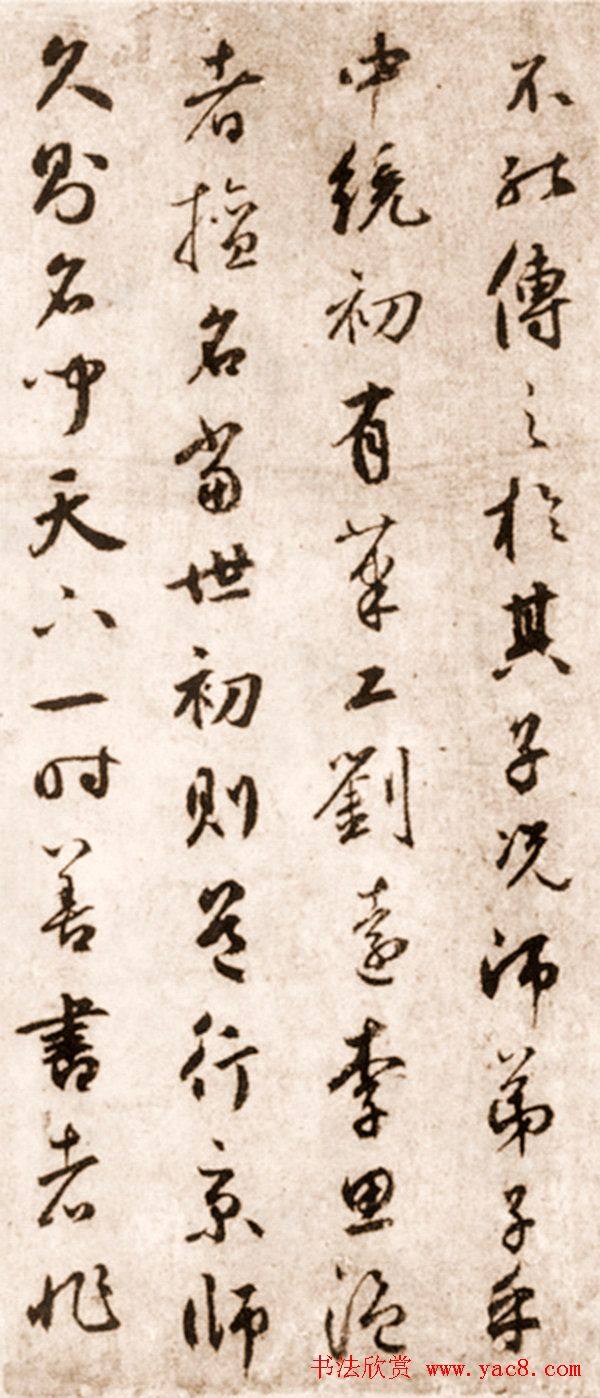 不能傳之於其子況師弟子乎
中統初有筆工劉遠李思温
者擅名當世初則行京師
久則名聞天下一時善書者非
书法欣赏 www.yac8.com